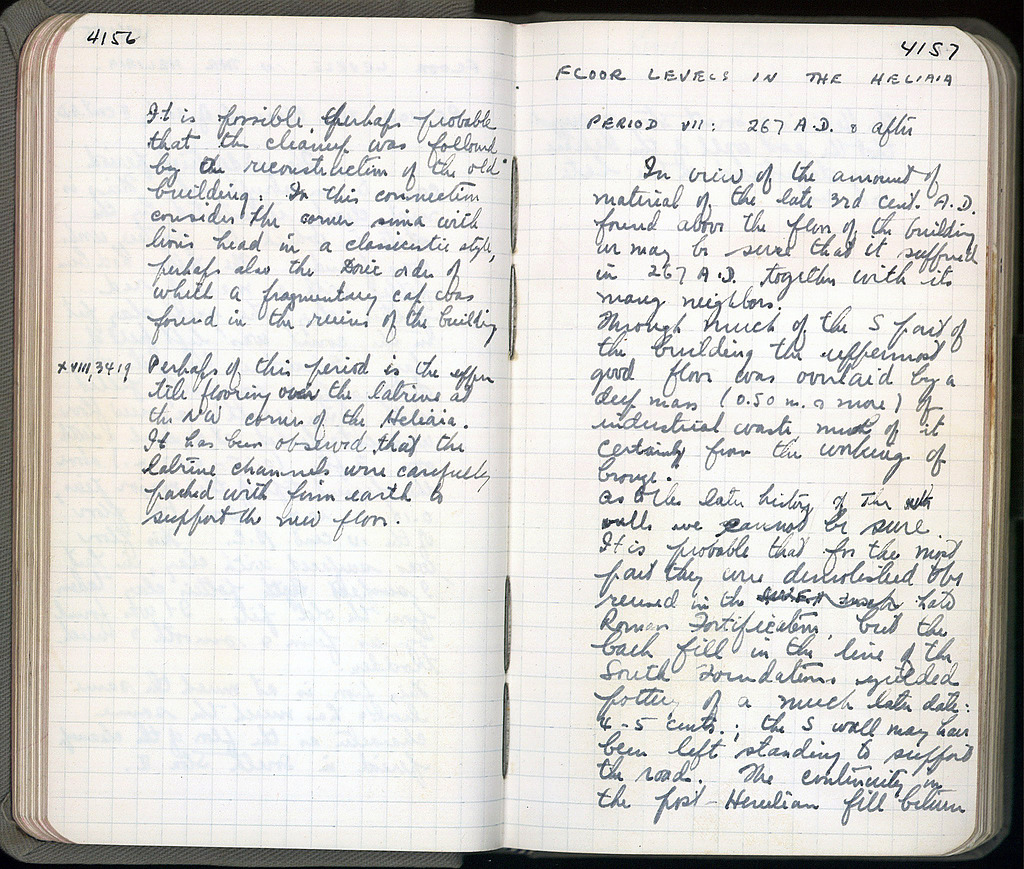 4156
It is possible, perhaps probable
that the cleanup was followed
by the reconstruction of the old
building. In this connection
consider the corner sima with
lion's head in a classicistic style,
perhaps also the Doric order of
which a fragmentary cap was
found in the ruins of the building
XVIII, 3419 Perhaps of this period is the upper
tile flooring over the latrine at
the NW corner of the Heliaia.
It has been observed that the
latrine channels were carefully
packed with firm earth to
support the new floor.
4157
FLOOR LEVELS IN THE HELIAIA
PERIOD VII: 267 A.D. & after
In view of the amount of
material of the late 3rd cent. A.D.
found above the floor of the building
we may be sure that it suffered
in 267 A.D. together with its
many neighbors.
Through much of the S part of
the building the uppermost
good floor was overlaid by a
deep mass (0.50 m. & more) of
industrial waste much of it
certainly from the working of
bronze.
As to the later history of the
walls we cannot be sure.
It is probable that for the most
part they were demolished &
reused in the Late
Roman Fortification, but the
back fill in the line of the
South Foundations yielded
pottery of a much later date:
4-5 cents.; the S wall may have
been left standing to support
the road. The continuity in
the post-Herulian fill between